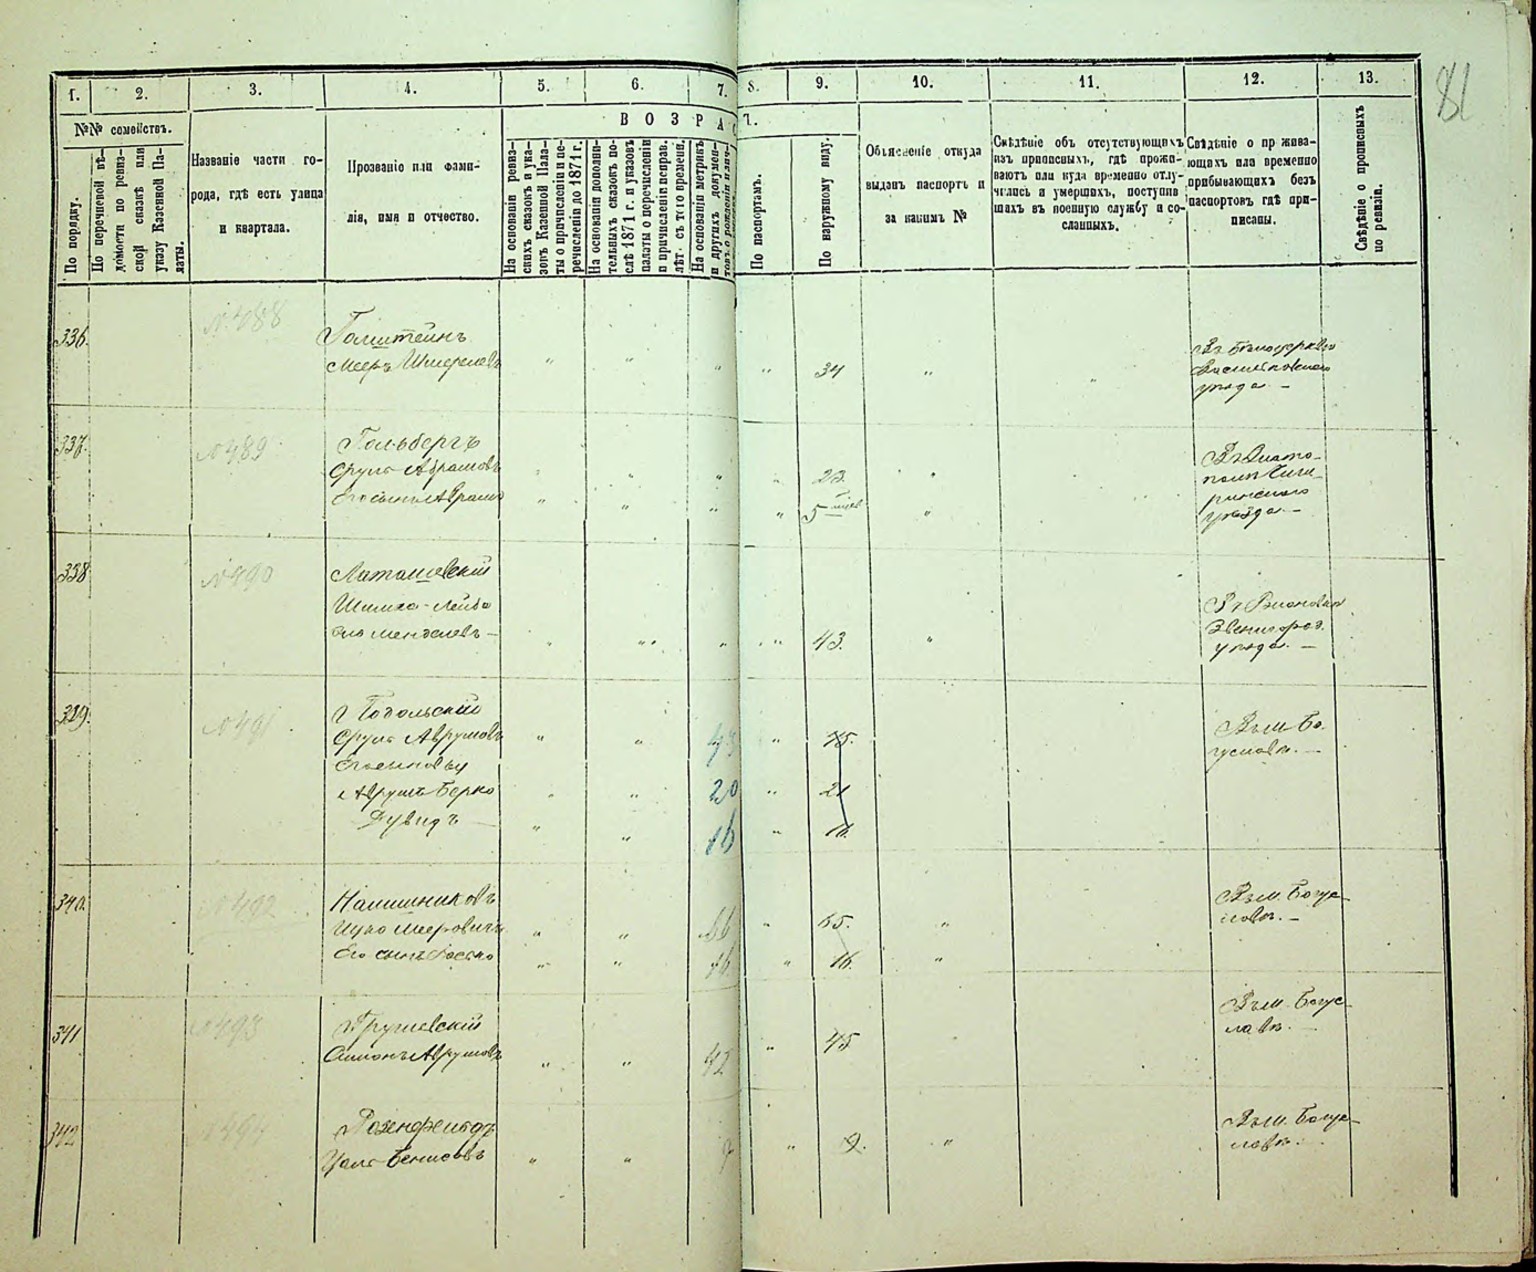 81
1.
2.
3.
4.
5.
6.
7.
8.
9.
10.
11.
12.
13.
№№ семействъ.
ВОЗРАСТ.
По порядку.
По перечневой вѣ-
домости по ревиз-
ской сказкѣ или
указу Казенной Па-
латы.
Названіе части го-
рода, гдѣ есть улица
и квартала.
Прозваніе или фами-
лія, имя и отчество.
На основаніи ревиз-
скихъ сказокъ и ука-
зовъ Казенной Пала-
ты о причисленіи и пе-
речисленіи до 1871 г.
На основаніи дополни-
тельныхъ сказокъ по-
слѣ 1871 г. и указовъ
палаты о перечисленіи
и причисленіи неправ.
лѣт. съ того времени.
На основаніи метрикъ
и другихъ докумен-
товъ о рожденіи
По паспортамъ.
По наружному виду.
Объясненіе откуда
выданъ паспортъ и
за какимъ №
Свѣдѣніе объ отсутствующихъ
изъ приписныхъ, гдѣ прожи-
ваютъ или куда временно отлу-
чились и умершихъ, поступив
шихъ въ военную службу и со-
сланныхъ.
Свѣдѣніе о пр жива-
ющихъ или временно
прибывающихъ безъ
паспортовъ гдѣ при-
писаны.
Свѣдѣніе о прописныхъ
по ревизіи.
336.
№ 488
Голштейнъ
Мееръ Шмерелевъ
34
Въ Бѣлоцерковѣ
Васильковскаго
уѣзда. –
337.
№ 489
Гольбергъ
Сруль Абрамовъ
Его сынъ Абрамъ
23.
5
Въ Злато-
полѣ Чиги-
ринскаго
уѣзда. –
338
№ 490
Латашевскій
Шимха-Лейба
Менделевъ –
43.
Звенигород.
уѣзда. –
339.
№ 491
Подольскій
Сруль Аврумовъ
Его сыновья
Аврумъ Берко
Дувидъ –
20
16
45.
21
16.
Въ м. Бо-
гуславѣ. –
340.
№ 492
Ицко Мееровичъ
Его сынъ
66
16
65.
16.
Въ м. Богу-
славѣ. –
341
№ 493
Грушевскій
Симонъ Аврумовъ
42
45
Въ м. Богус-
лавѣ. –
342
№ 494
Розенфельдъ
9.
Въ м. Богу-
славѣ.